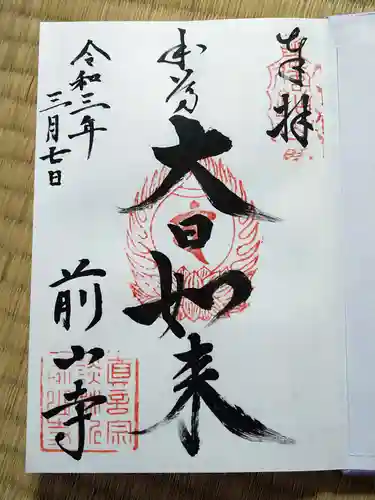 奉拝
本尊
大日如来
令和三年
三月七日
前山寺